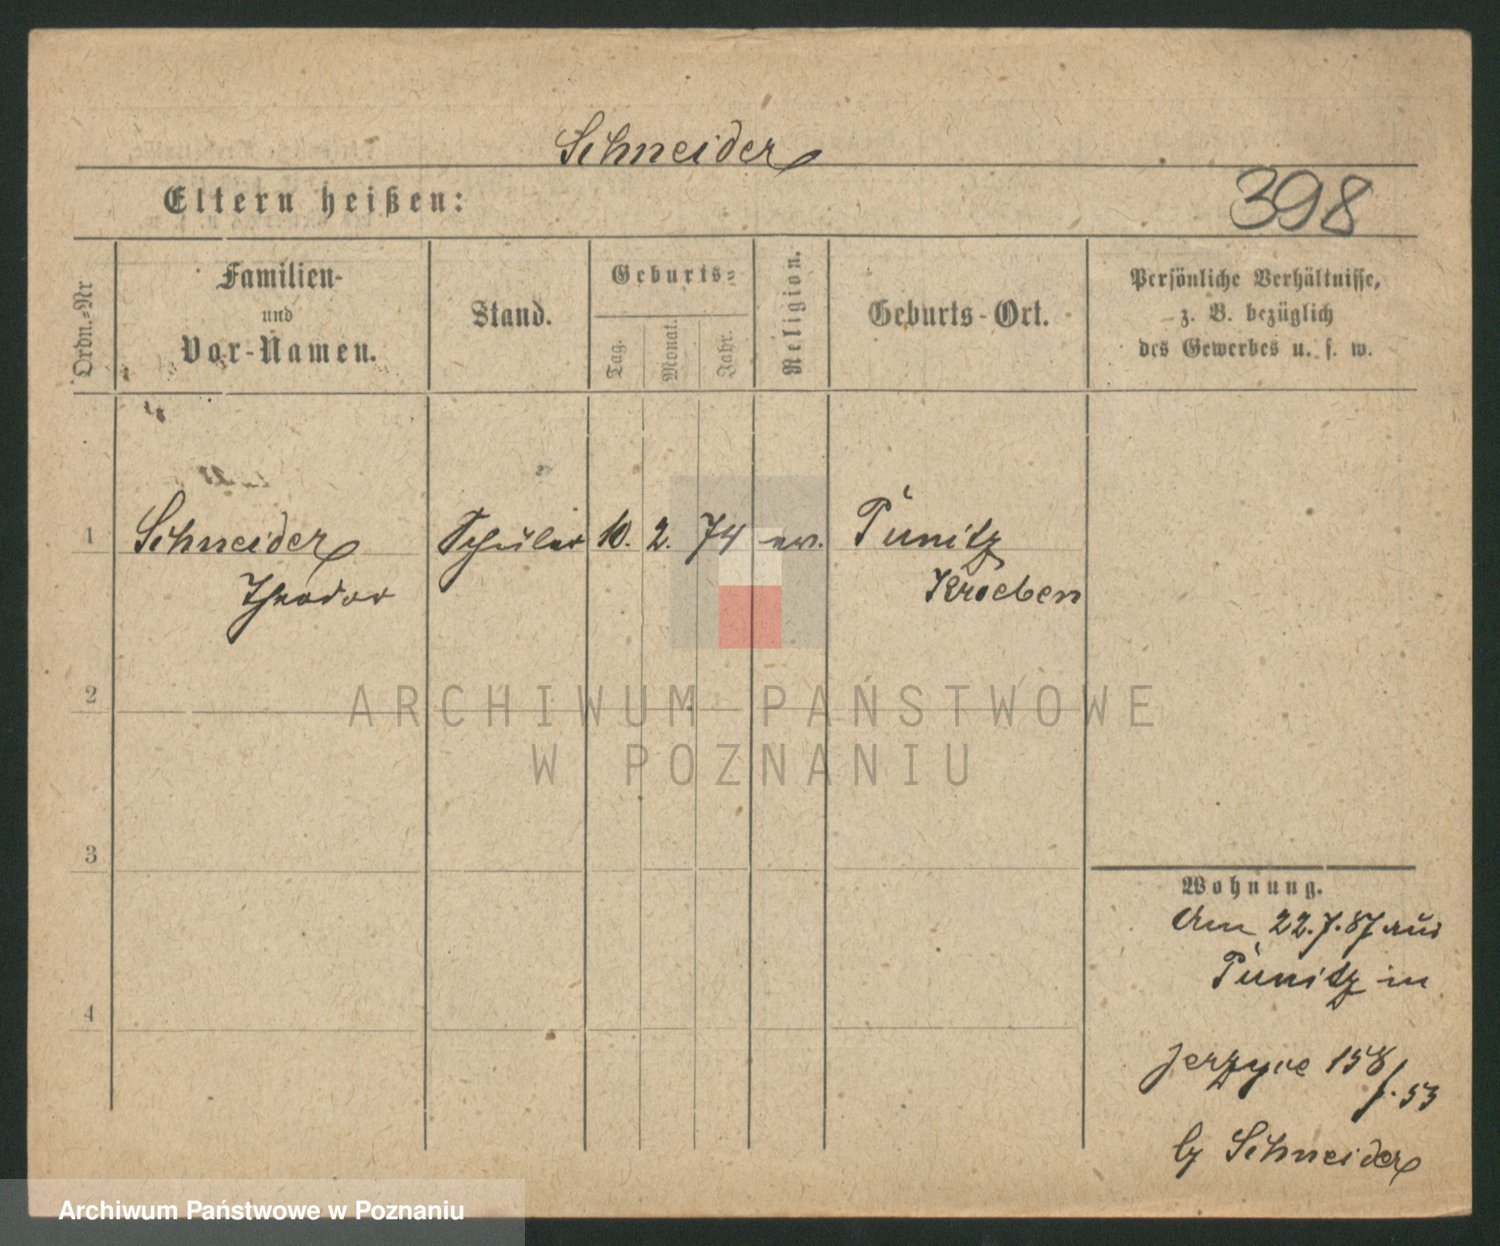 Schneider
Eltern heißen:
398
Ordn.-Nr
Familien-
und
Vor-Namen.
Stand.
Geburts-
Tag.
Monat.
Jahr.
Religion.
Geburts-Ort.
Persönliche Verhältnisse,
z. B. bezüglich
des Gewerbes u. s. w.
1
Schneider
Theodor
Schüler
10.
2.
74
ev.
Punitz
Kroeben
2
ARCHIWUM PAŃSTWOWE
W POZNANIU
3
4
Wohnung.
Am 22.7.87 aus
Punitz in
Jerzyce 158
f. 53
by Schneider
Archiwum Państwowe w Poznaniu